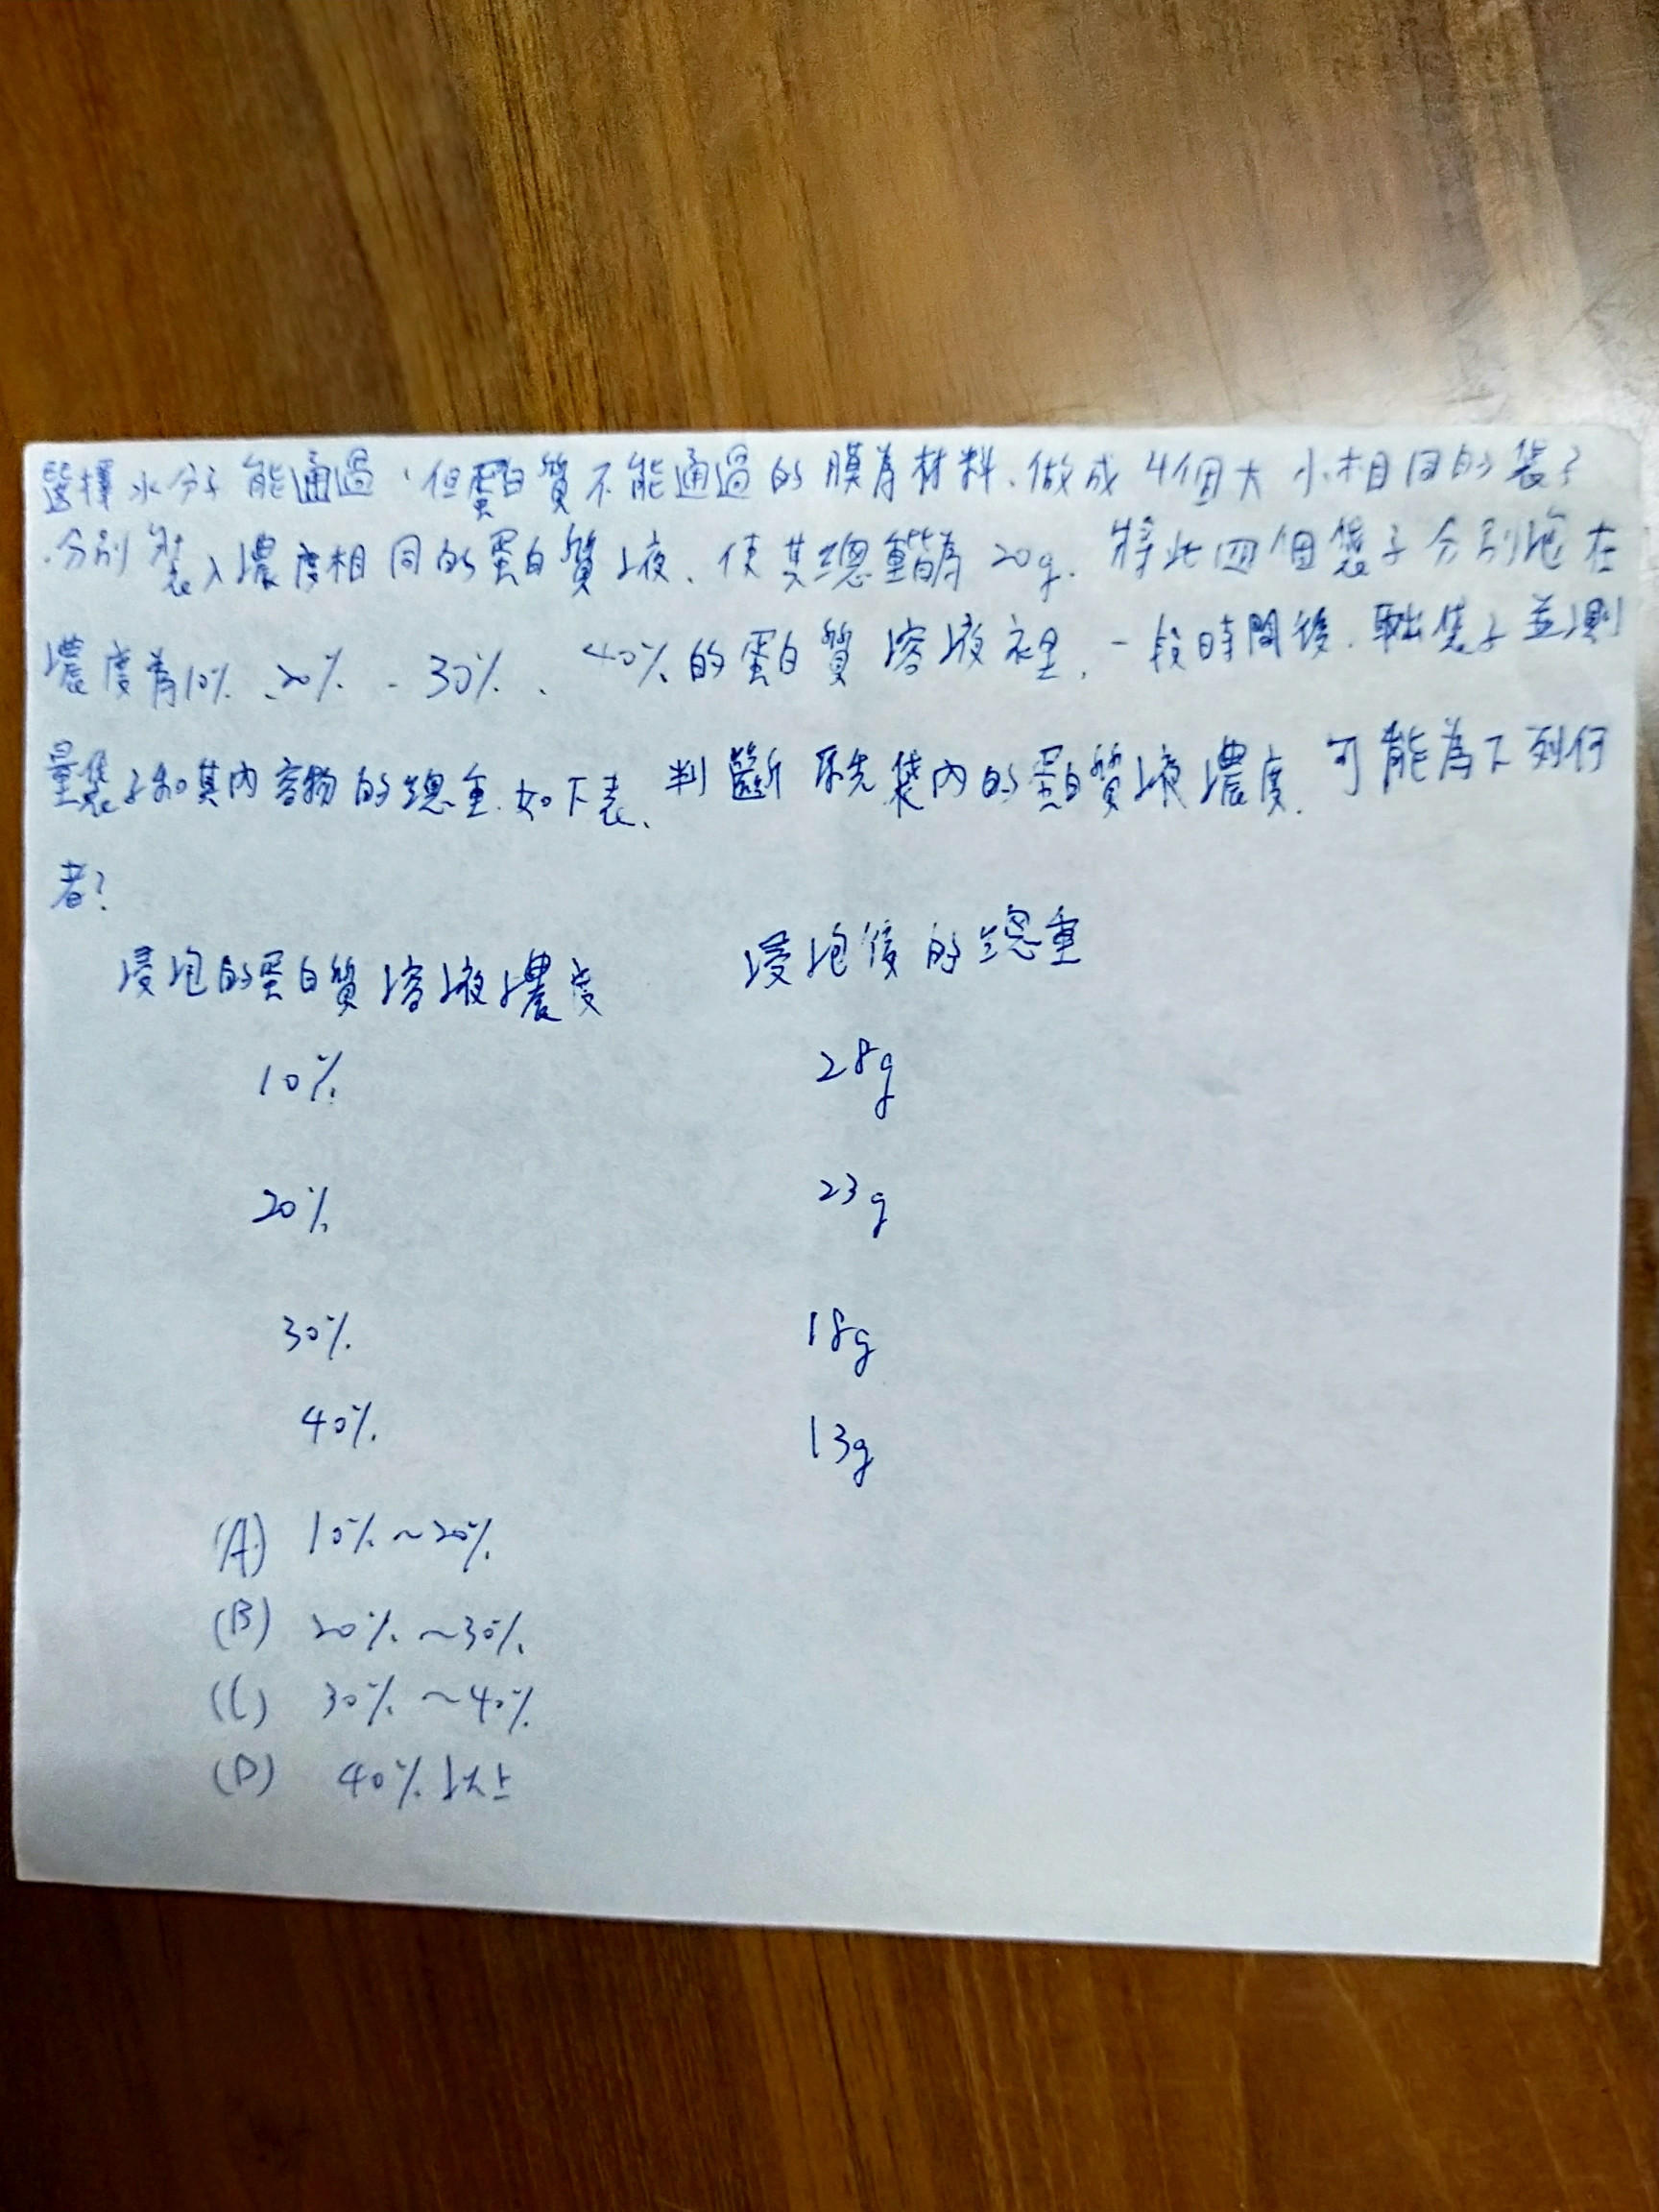 選擇水分子能通過，但蛋白質不能通過的膜為材料、做成4個大小相同的袋子
、分別裝入濃度相同的蛋白質液、使其總重皆為20g. 將此四個袋子分別泡在
濃度為10%、20%、30%、40%的蛋白質溶液裡，一段時間後，取出袋子並測
量袋子和其內容物的總重，如下表、判斷原先袋內的蛋白質液濃度，可能為下列何
者？
浸泡的蛋白質溶液濃度 浸泡後的總重
10% 28g
20% 23g
30% 18g
40% 13g
(A) 10%~20%
(B) 20%~30%
(C) 30%~40%
(D) 40%以上